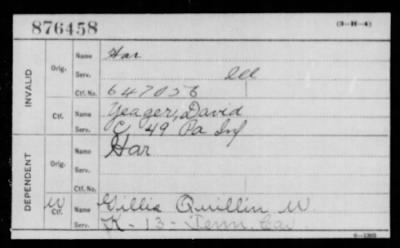 876458 (3-H-4)
INVALID
Orig. Name Har
Serv. Ill
Ctf. No. 647026
Ctf. Name Yeager, David
Serv. C, 49 Pa Inf
DEPENDENT
Orig. Name Har
Serv.
Ctf. No.
W Ctf. Name Gillis Quillin W.
Serv. K-13-Tenn. Cav